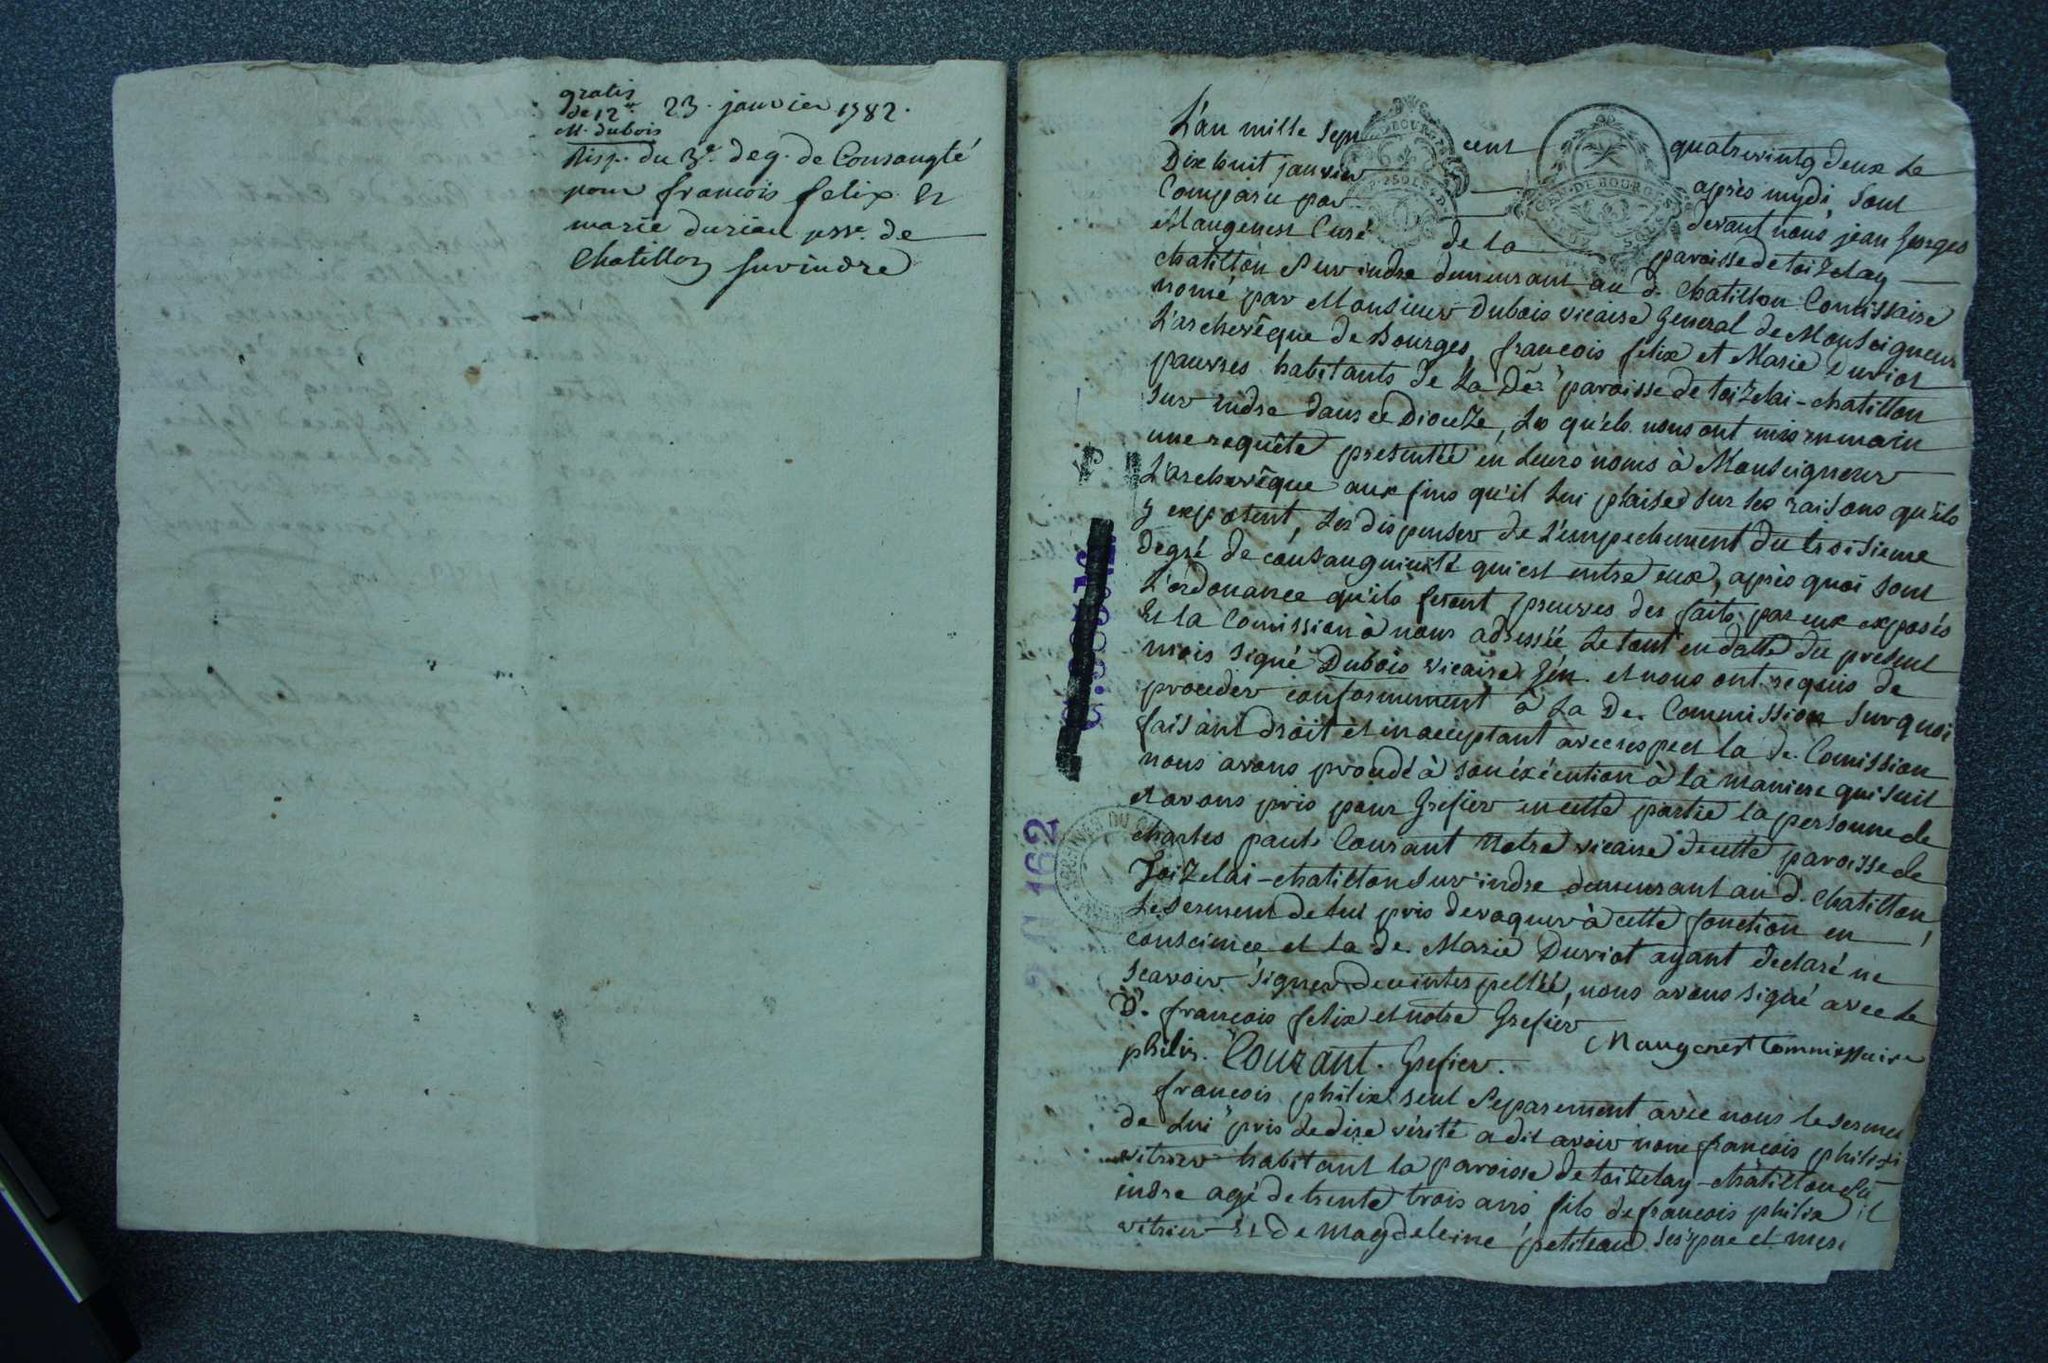 gratis
de 12ʰ
M. dubois
23. janvier 1782.
Disp. du 3ᵉ. deg. de Consangté
pour francois felix Et
marie duriau psse. de
Chatillon sur indre
L'an mille sept cent quatrevingt deux Le
Dix huit janvier après mydi, sont
Comparu par devant nous jean Georges
Maugenest Curé de la paroisse de toizelay
chatillon sur indre demeurant au d. Chatillon Comissaire
nomé par Monsieur Dubois vicaire General de Monseigneur
L'archevêque de Bourges, francois felix et Marie Duriot
pauvres habitants de La De. paroisse de toizelai-chatillon
sur indre dans ce Dioceze, Les qu'els nous ont mis en main
une requête presentée en Leurs noms à Monseigneur
L'archevêque aux fins qu'il Lui plaise sur les raisons qu'ils
y exposent, les dispenser de L'empechement du troisieme
Degré de consanguinité qui est entre eux, après quoi sont
L'ordonance qu'ils feront preuves des faits par eux exposés
Et la Comission à nous adressée Le tout en datte du present
mois signé Dubois vicaire Gén. et nous ont requis de
proceder conformement à La De. Commission surquoi
faisant droit et en acceptant avec respect la de. Comission
nous avons procedé à son éxécution à la maniere qui suit
et avons pris pour Grefier en cette partie la personne de
charles paul Courant Notre vicaire de cette paroisse de
Toizelai-chatillon sur indre demeurant au d. Chatillon,
Le serment de Lui pris de vaquer à cette fonction en
conscience et la de. Marie Duriot ayant declaré ne
scavoir signer de ce interpellée, nous avons signé avec le
D. francois felix et notre Grefier
Maugenest Commissaire
philix. Courant. Grefier.
francois philix seul separement avec nous le serment
de Lui pris de dire vérité a dit avoir nom francois philix
vitrier habitant la paroisse de toizelay-châtillon
indre agé de trente trois ans fils de francois philix
vitrier Et de Magdeleine petiteau ses pere et mere
2 G 162
ARCHIVES DU